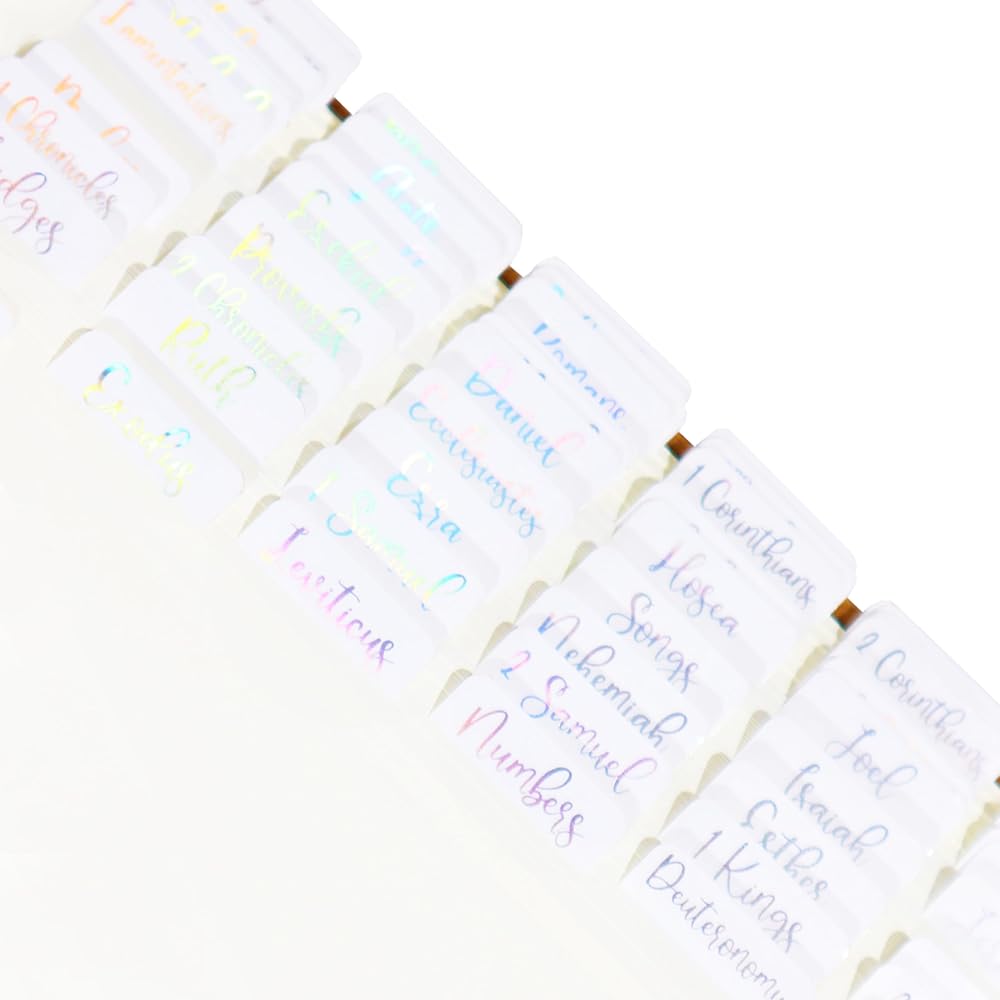 Lamentations
1 Chronicles
Acts
Ezekiel
Proverbs
2 Chronicles
Ruth
Exodus
Romans
Daniel
Ecclisiastes
Ezra
1 Samuel
Leviticus
1 Corinthians
Hosea
Songs
Nehemiah
2 Samuel
Numbers
2 Corinthians
Joel
Isaiah
Esther
1 Kings
Deuteronomy